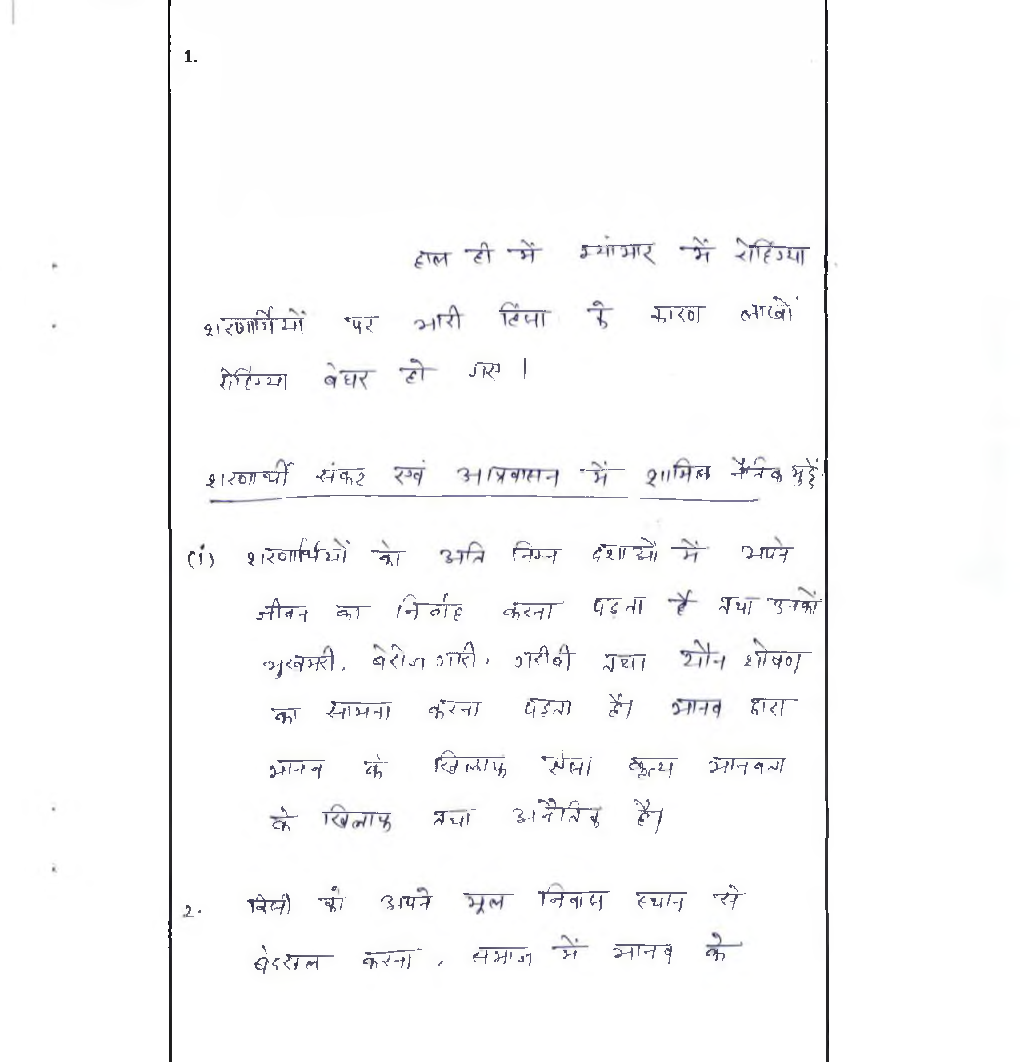 1.
हाल ही में म्यांमार में रोहिंग्या
शरणार्थियों पर भारी हिंसा के कारण लाखों
रोहिंग्या बेघर हो गए।
शरणार्थी संकट एवं आप्रवासन में शामिल नैतिक मुद्दें
(i) शरणार्थियों को अति निम्न दशाओं में अपने
जीवन का निर्वाह करना पड़ता है तथा उनको
भुखमरी, बेरोजगारी, गरीबी तथा यौन शोषण
का सामना करना पड़ता है। मानव द्वारा
मानव के खिलाफ ऐसा कृत्य मानवता
के खिलाफ तथा अनैतिक है।
2. किसी को अपने मूल निवास स्थान से
बेदखल करना, समाज में मानव के